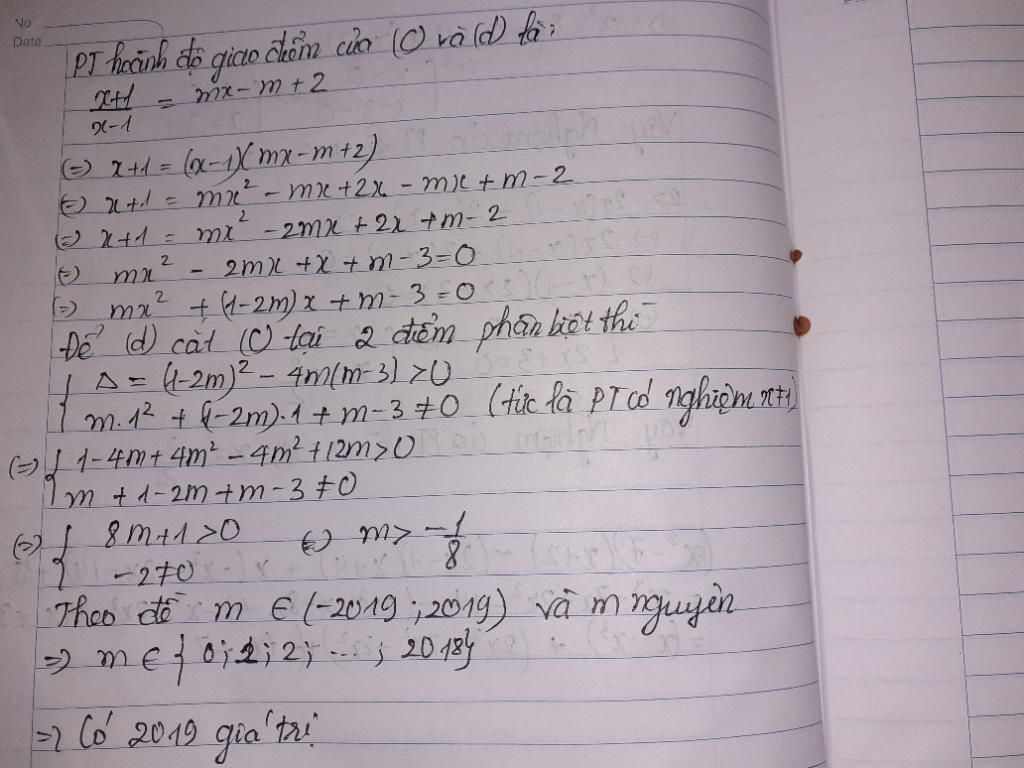 No
Date
PT hoành độ giao điểm của (C) và (d) là:
x+1/x-1 = mx - m + 2
(=) x+1 = (x-1)(mx-m+2)
(=) x+1 = mx² - mx + 2x - mx + m - 2
(=) x+1 = mx² - 2mx + 2x + m - 2
(=) mx² - 2mx + x + m - 3 = 0
(=) mx² + (1-2m)x + m - 3 = 0
Để (d) cắt (C) tại 2 điểm phân biệt thì
{ Δ = (1-2m)² - 4m(m-3) > 0
m.1² + (1-2m).1 + m - 3 ≠ 0 (tức là PT có nghiệm x≠1)
(=) { 1 - 4m + 4m² - 4m² + 12m > 0
m + 1 - 2m + m - 3 ≠ 0
(=) { 8m + 1 > 0 (=) m > -1/8
-2 ≠ 0
Theo đề m ∈ (-2019; 2019) và m nguyên
=> m ∈ { 0; 1; 2; ...; 2018}
=> Có 2019 giá trị